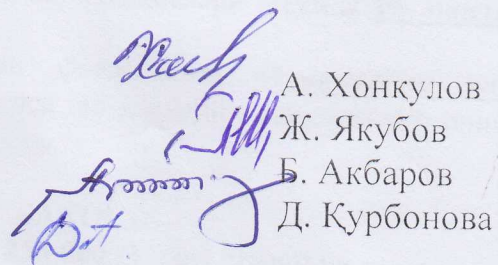 А. Хонкулов
Ж. Якубов
Б. Акбаров
Д. Қурбонова